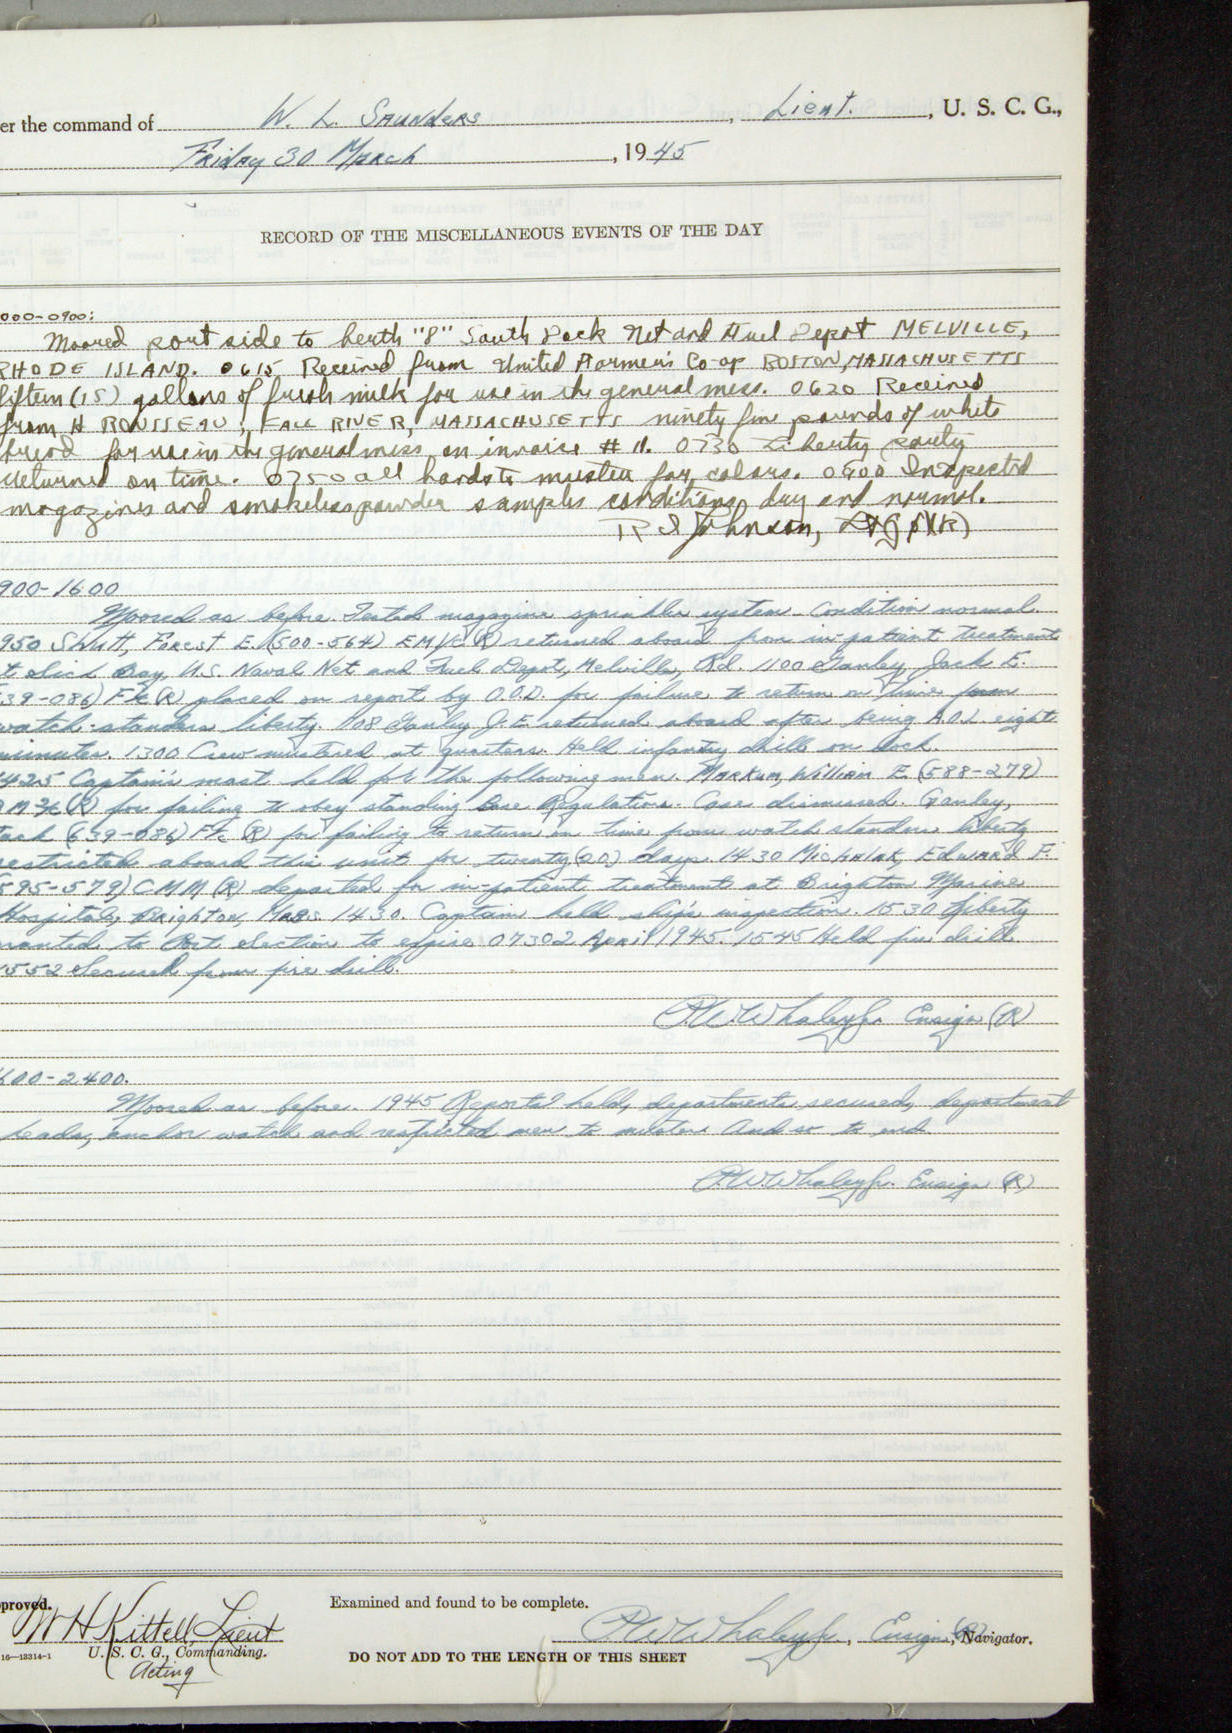 er the command of W. L. Saunders, Lieut., U. S. C. G.,
Friday 30 March, 1945
RECORD OF THE MISCELLANEOUS EVENTS OF THE DAY
000-0900:
Moored port side to berth "8" South Dock Net and Fuel Depot MELVILLE,
RHODE ISLAND. 0615 Received from United Farmers Co-op BOSTON, MASSACHUSETTS
fifteen (15) gallons of fresh milk for use in the general mess. 0620 Received
from H ROUSSEAU, FALL RIVER, MASSACHUSETTS ninety five pounds of white
bread for use in the general mess on invoice # 11. 0730 Liberty party
returned on time. 0750 all hands to muster for colors. 0900 Inspected
magazines and smokeless powder samples conditions dry and normal.
R S Johnson, Lt(jg)(R)
900-1600
Moored as before. Tested magazine sprinkler system. Condition normal.
950 Shutt, Forest E. (500-564) EM/c (R) returned aboard from in-patient treatment
t Sick Bay, U.S. Naval Net and Fuel Depot, Melville, Rd. 1100 Ganley, Jack E.
39-086) F1c (R) placed on report by O.O.D. for failure to return on time from
watch-standers liberty. 1108 Ganley J.E. returned aboard after being A.O.L. eight
minutes. 1300 Crew mustered at quarters. Held infantry drill on dock.
1425 Captain's mast held for the following men. Markum, William E. (588-279)
M 3/c (R) for failing to obey standing Base Regulations. Case dismissed. Ganley,
Jack (639-086) F1c (R) for failing to return on time from watch standers liberty
restricted aboard this unit for twenty (20) days. 1430 Michalak, Edward F.
(595-579) C.M.M (R) departed for in-patient treatment at Brighton Marine
Hospital, Brighton, Mass. 1430. Captain held ship's inspection. 1530 Liberty
ranted to Port section to expire 0730 2 April 1945. 1545 Held fire drill
1552 Secured from fire drill.
P.W. Whaley Jr. Ensign (R)
600-2400.
Moored as before. 1945 Reports held, departments secured, department
heads, anchor watch and restricted men to muster. And so to end.
P.W. Whaley Jr. Ensign (R)
pproved.
W H Kittell, Lieut
U. S. C. G., Commanding.
Acting
16—13314-1
Examined and found to be complete.
P.W. Whaley Jr., Ensign (R), Navigator.
DO NOT ADD TO THE LENGTH OF THIS SHEET